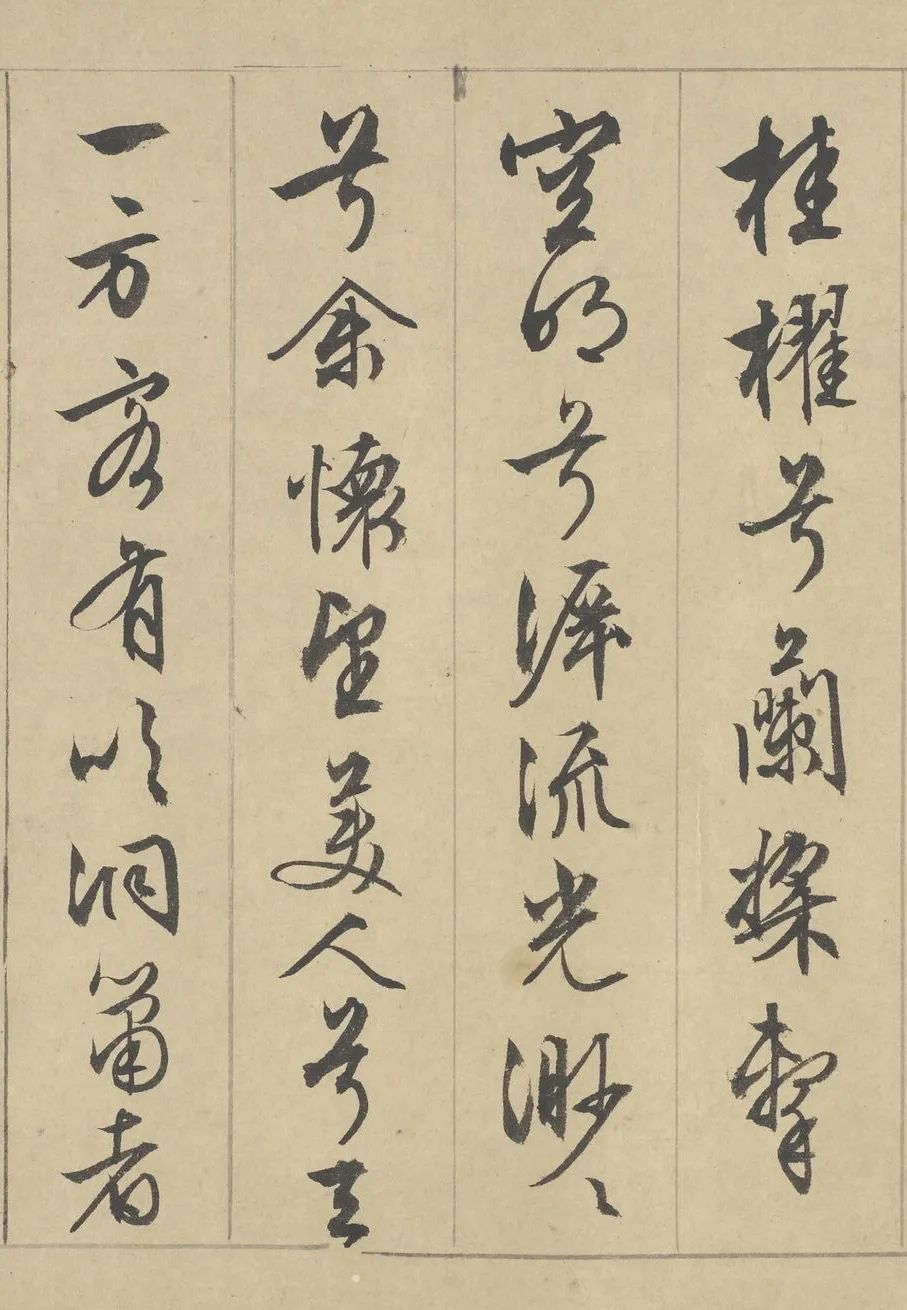 桂櫂兮蘭槳擊
空明兮泝流光渺〻
兮余懷望美人兮天
一方客有吹洞簫者